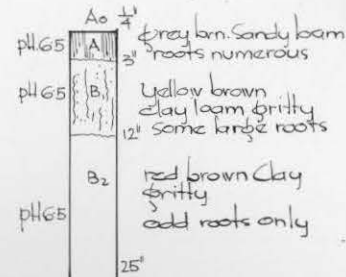 Ao 1/4"
pH.65 A grey brn. Sandy loam
3" roots numerous
pH65 B1 yellow brown
clay loam gritty
12" some large roots
B2 red brown Clay
gritty
pH65 odd roots only
25"